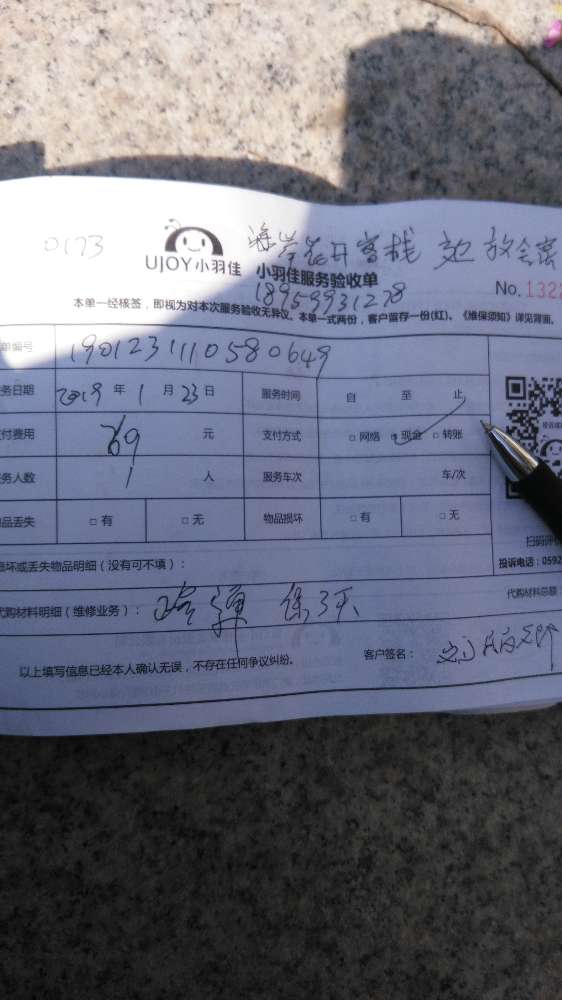 0173
海岸花开客栈
UJOY小羽佳 小羽佳服务验收单
No. 1322
18959931278
本单一经核签,即视为对本次服务验收无异议。本单一式两份,客户留存一份(红)。《维保须知》详见背面。
单编号 1901231110580649
务日期 2019 年 1 月 23 日 服务时间 自 至 止
付费用 元 支付方式 □ 网络 □ 现金 □ 转账
务人数 1 人 服务车次 车/次
品丢失 □ 有 □ 无 物品损坏 □ 有 □ 无
损坏或丢失物品明细(没有可不填):
扫码评
投诉电话:0592
代购材料明细(维修业务):
代购材料总额:
以上填写信息已经本人确认无误,不存在任何争议纠纷。 客户签名: